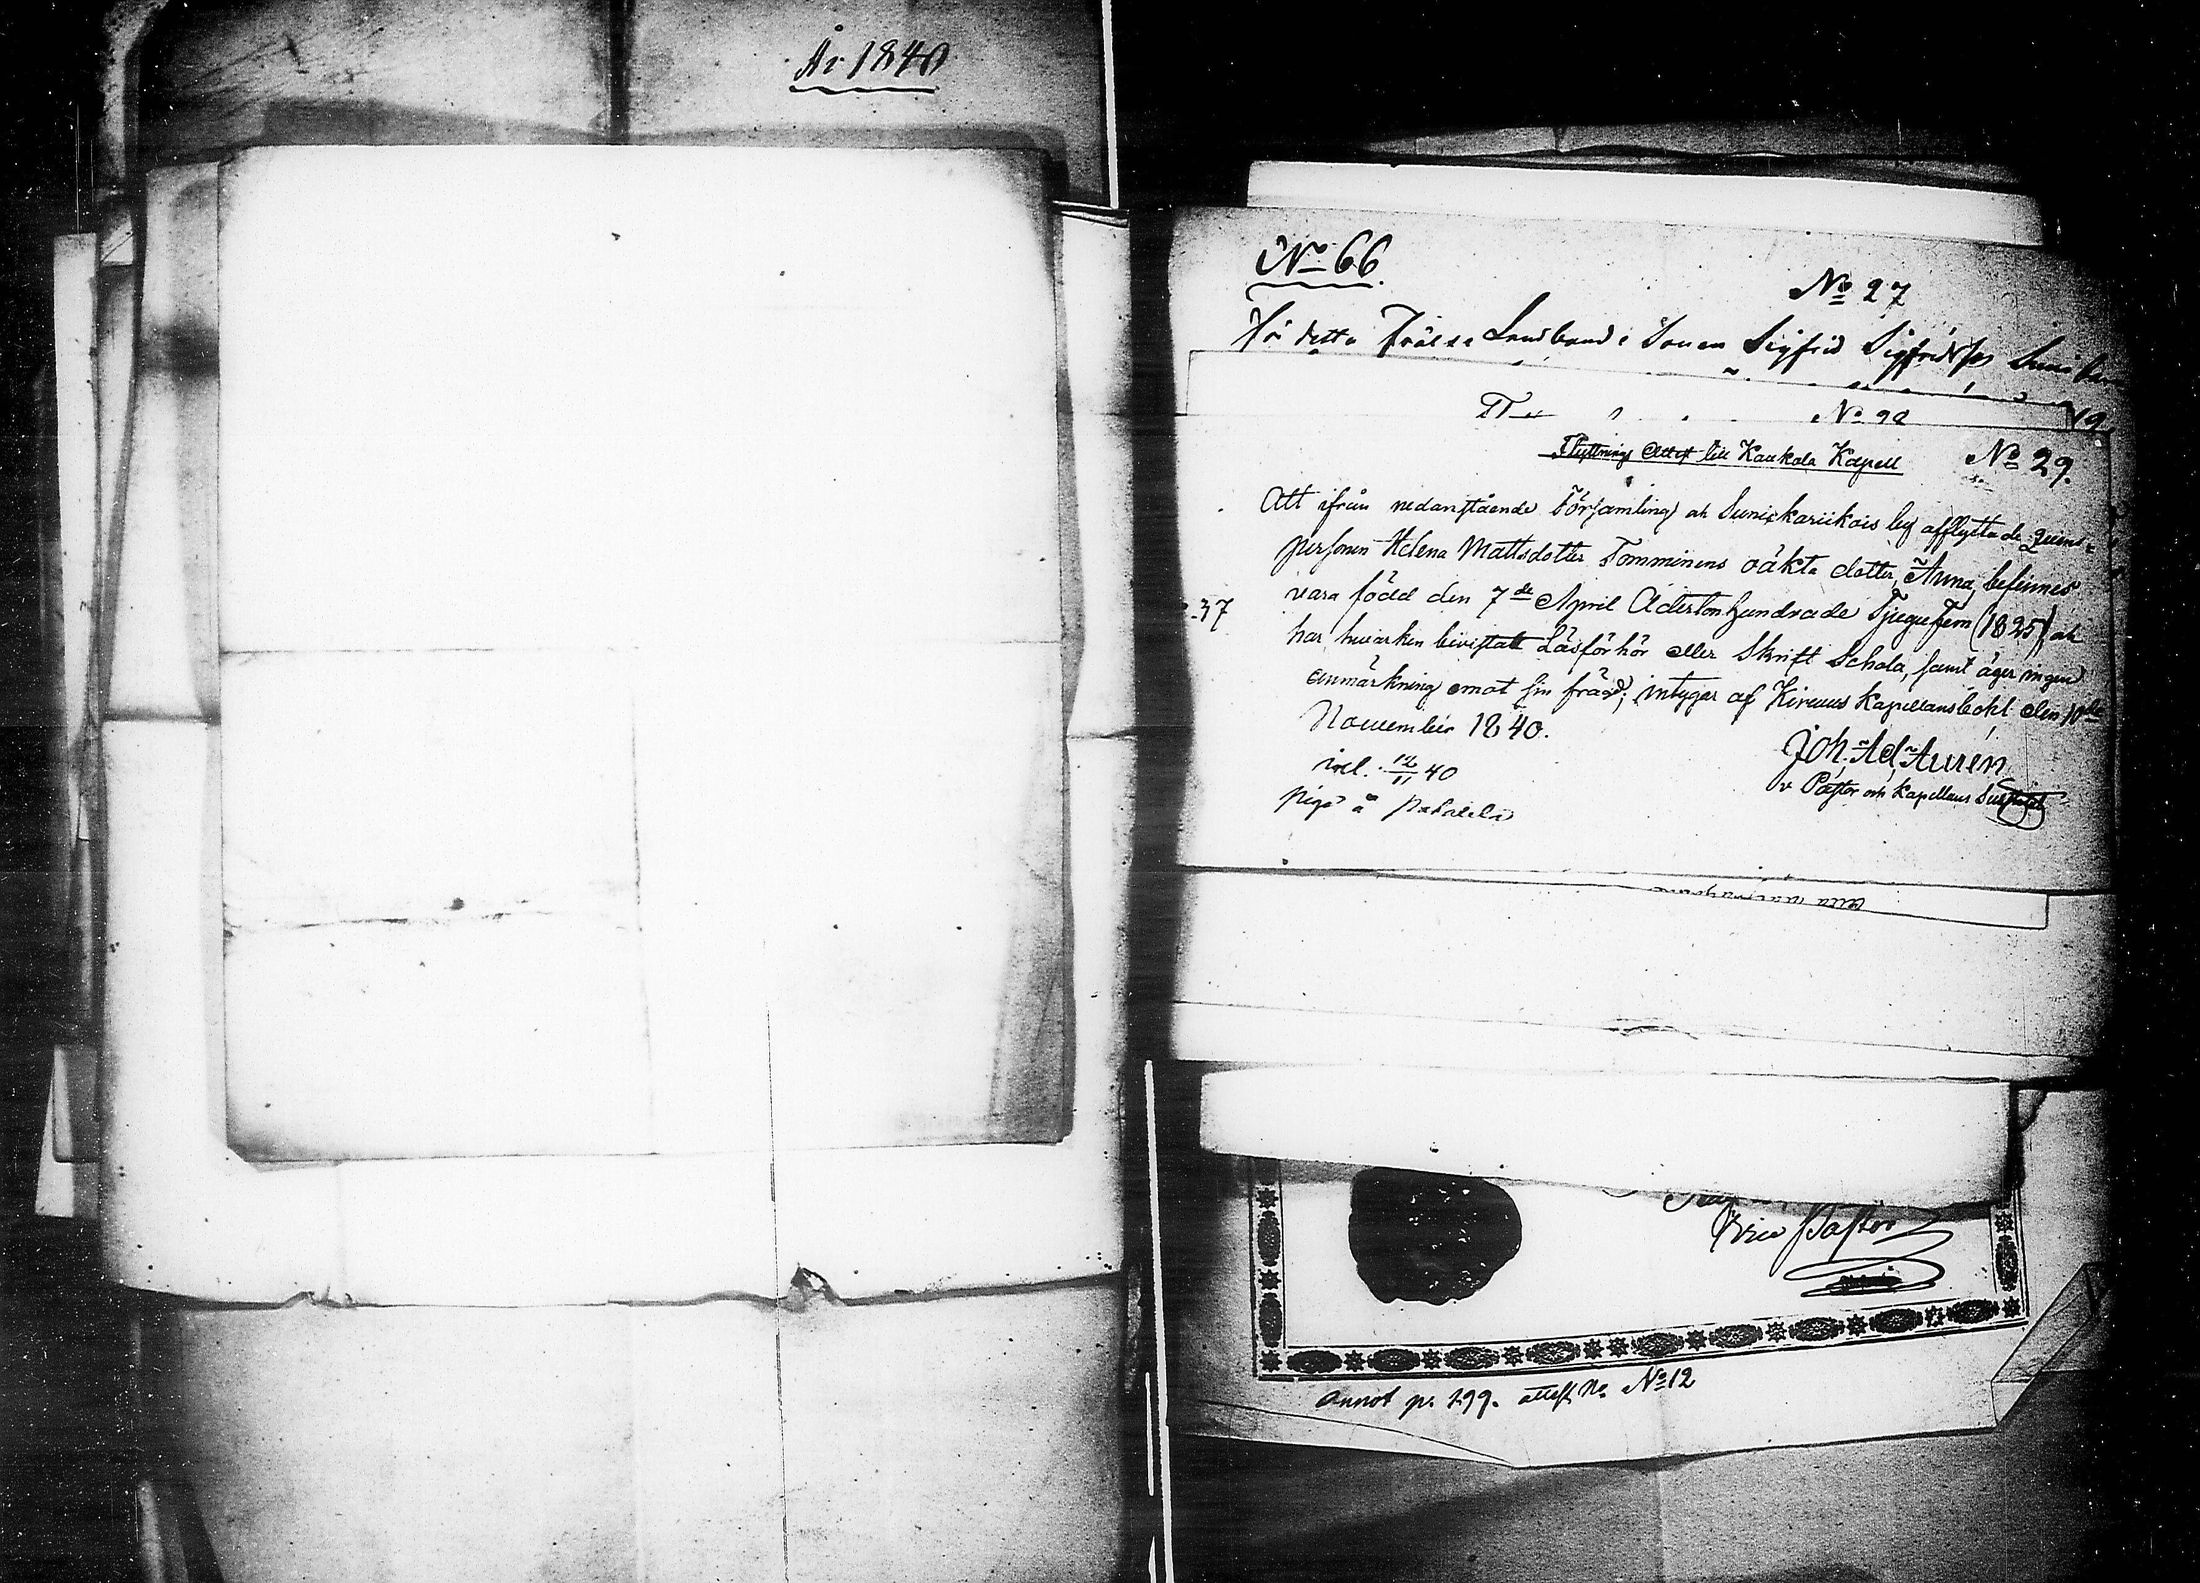 År 1840
No 66.
No 27
För detta Frälse Landbonde Sonen Sigfrid Sigfridsson
No 28
Flyttnings Attest till Kaukola Kapell
No 29.
Att ifrån nedanstående Församling och Suni karikois by afflyttade Quins-
personen Helena Mattsdotter Tomminens oäkta dotter, Anna, befinnes
vara född den 7de April Adertonhundrade Tjugufem (1825), och
37
har hwarken bevistatt Läsförhör eller Skrift Schola, samt äger ingen
anmärkning emot sin fräjd; intygar af Kirvus Kapellansbohl den 10de
November 1840.
Joh. Ad. Aurén
v. Pastor och Kapellans
inl. 12/11 40
piga å
Vice Pastor
annot p. 299. attest No. No 12